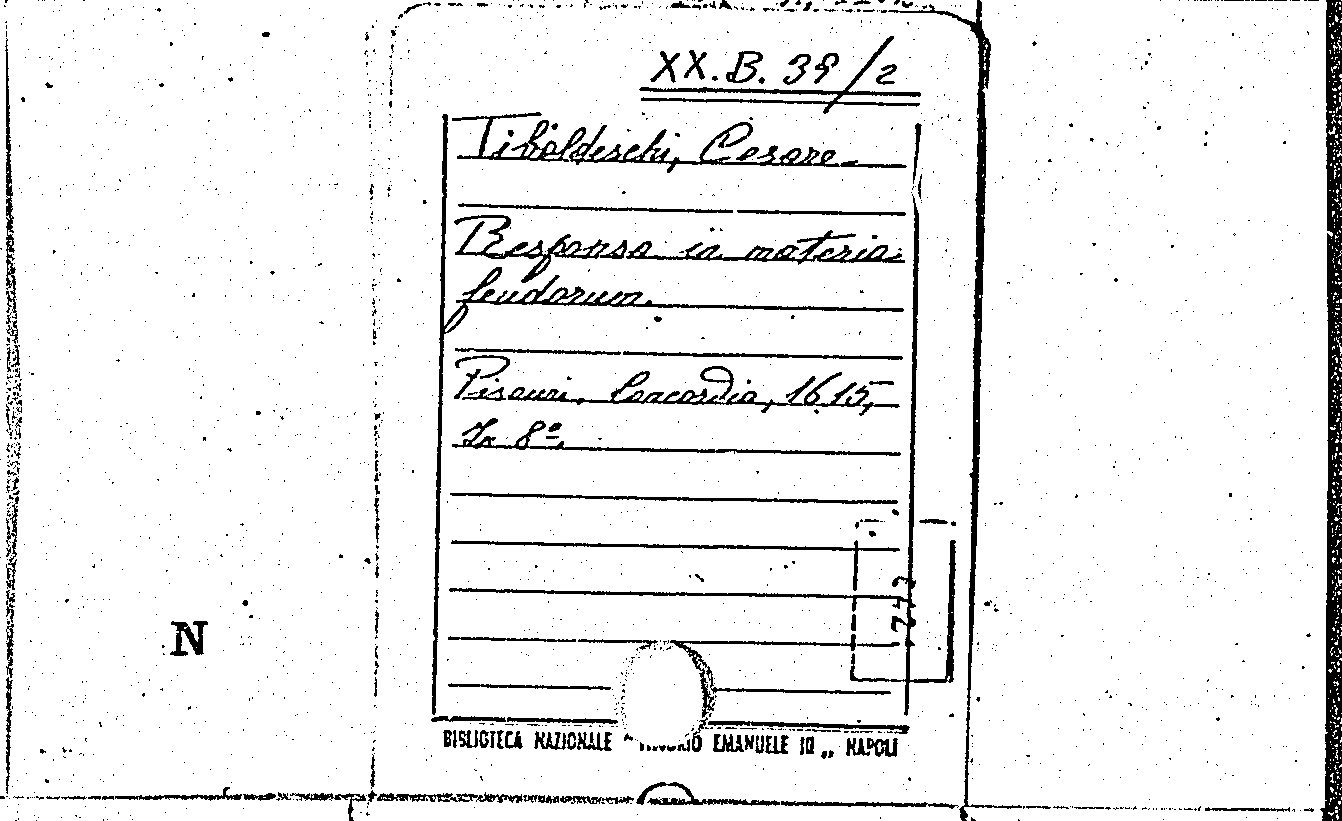 XX.B. 39/2
Tiboldeschi, Cesare.
Responsa in materia
feudorum.
Pisauri, Concordia, 1615,
In 8º.
N
BIBLIOTECA NAZIONALE " EMANUELE III „ NAPOLI